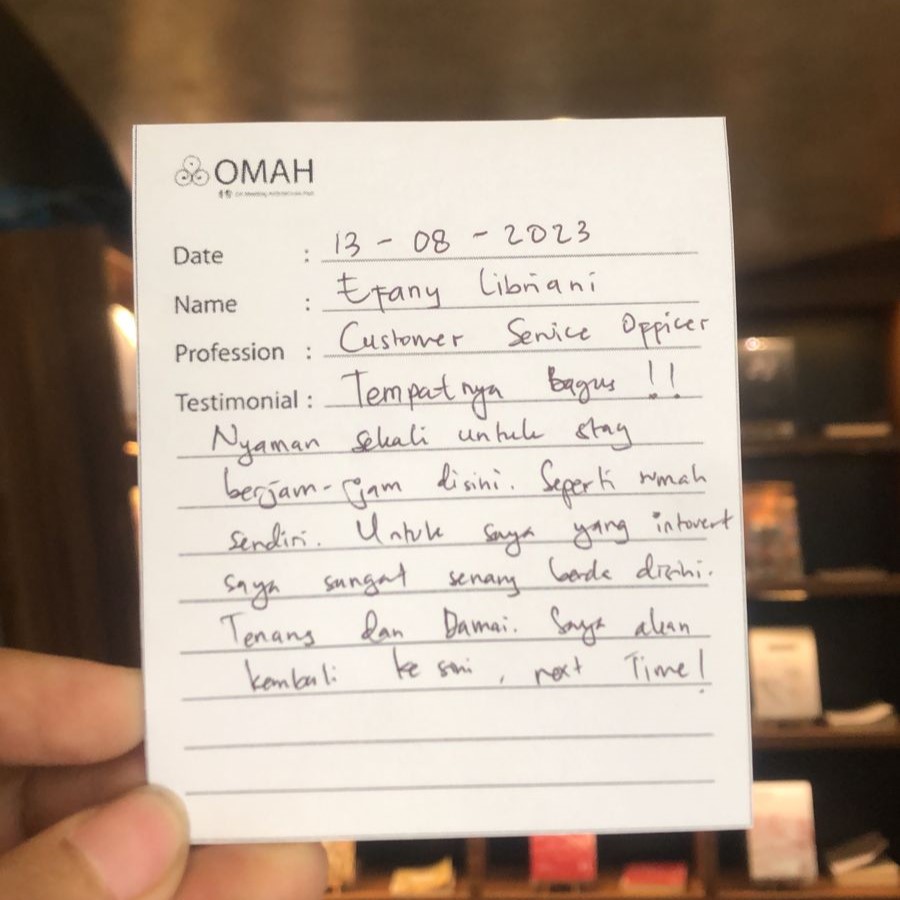 OMAH
Date : 13 - 08 - 2023
Name : Efany Libriani
Profession : Customer Service Opficer
Testimonial : Tempatnya Bagus !!
Nyaman sekali untuk stay
berjam-jam disini. Seperti rumah
sendiri. Untuk saya yang intovert
saya sangat senang berda disini.
Tenang dan Damai. Saya akan
kembali ke sini, next Time!